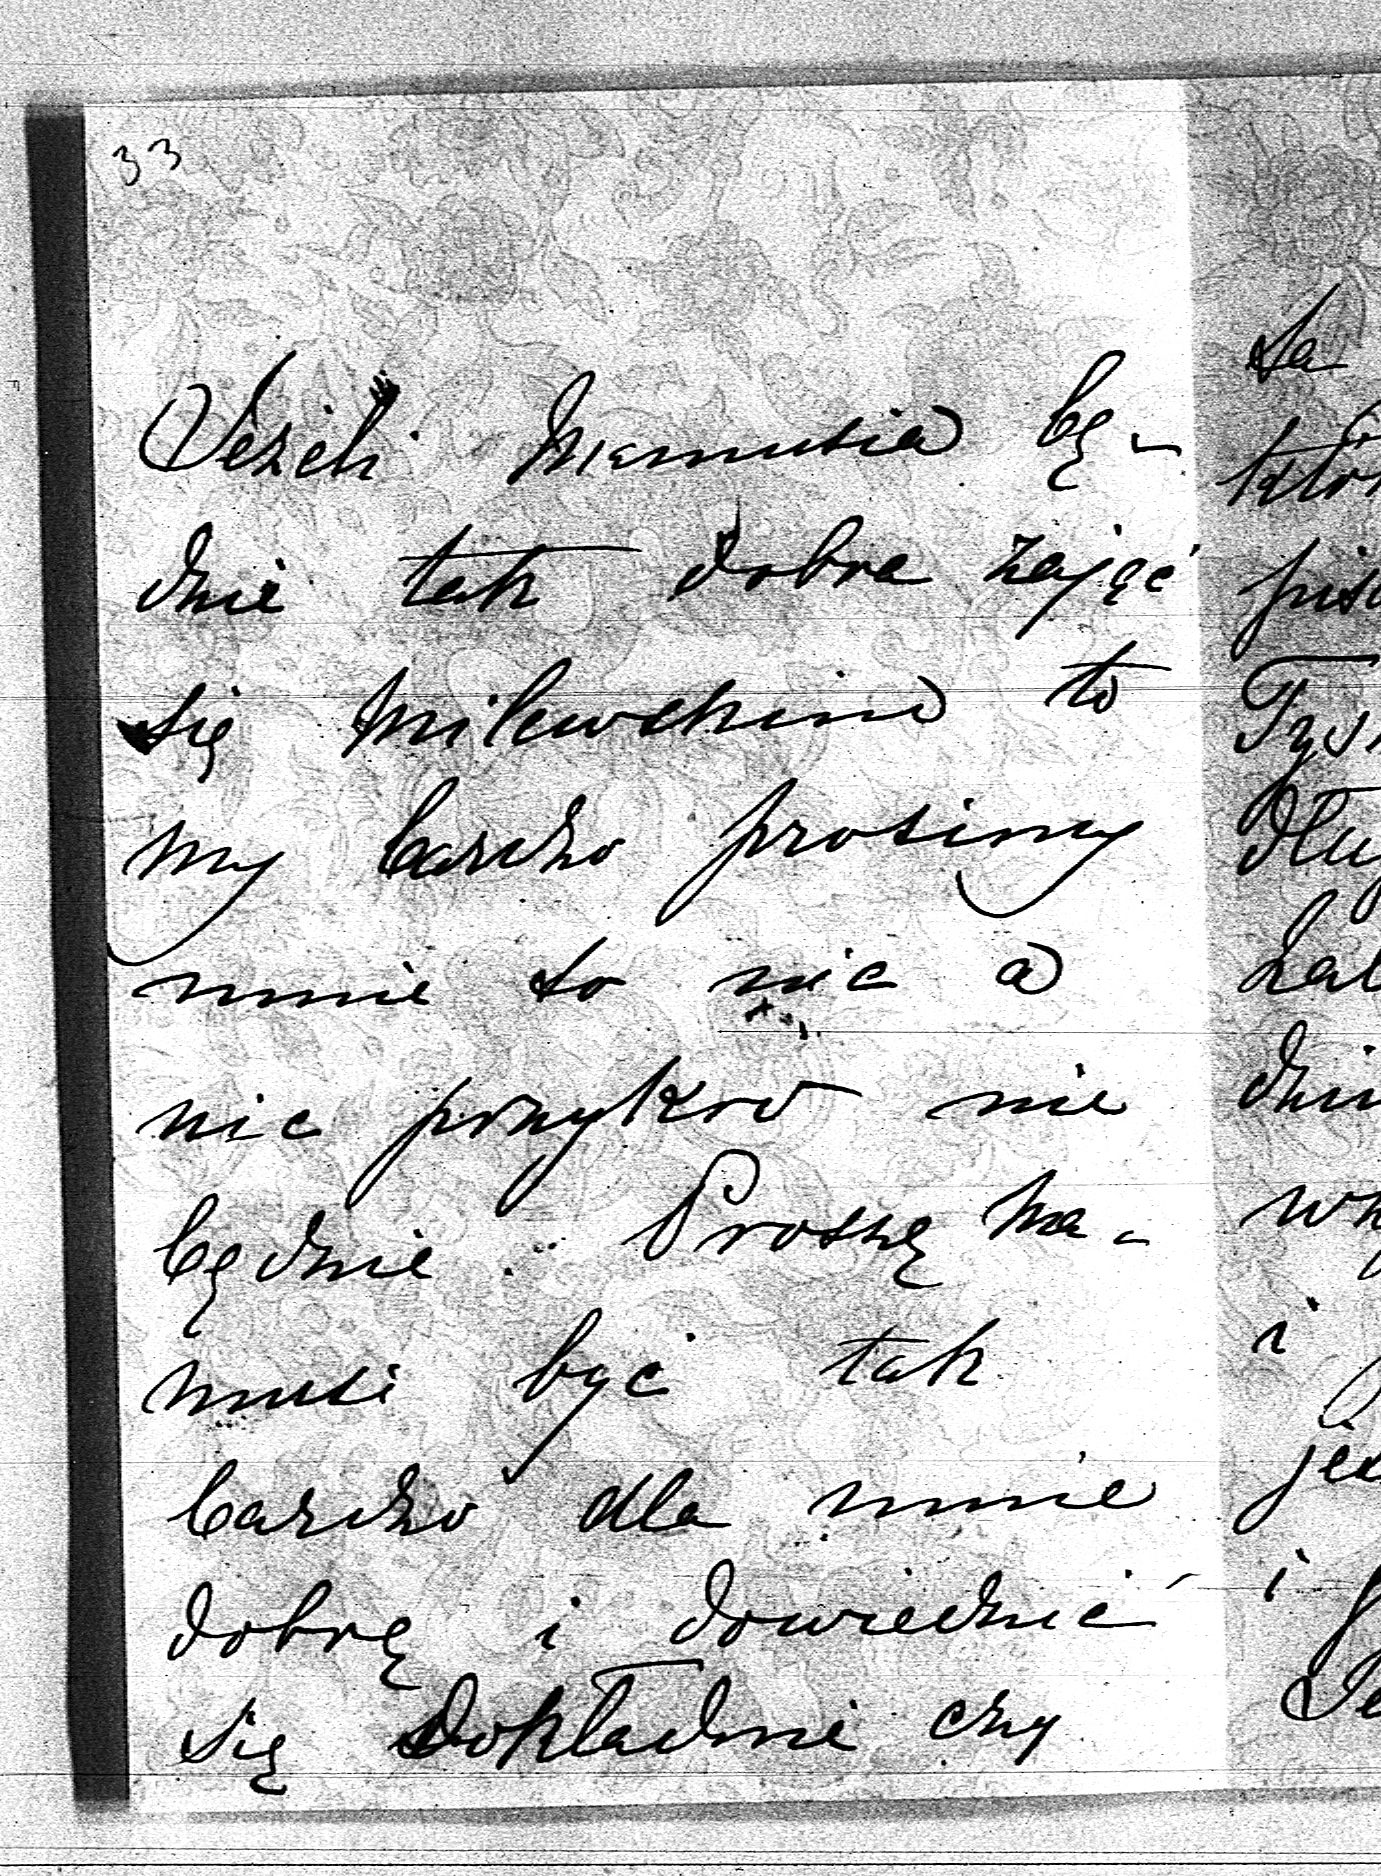 33
Jeżeli Mamusia bę-
dzie tak dobra zająć
się Milewskim to
my bardzo prosimy
mnie to nic a
nic przykro nie
będzie. Proszę Ma-
musi być tak
bardzo dla mnie
dobrą i dowiedzieć
się Dokładnie czy